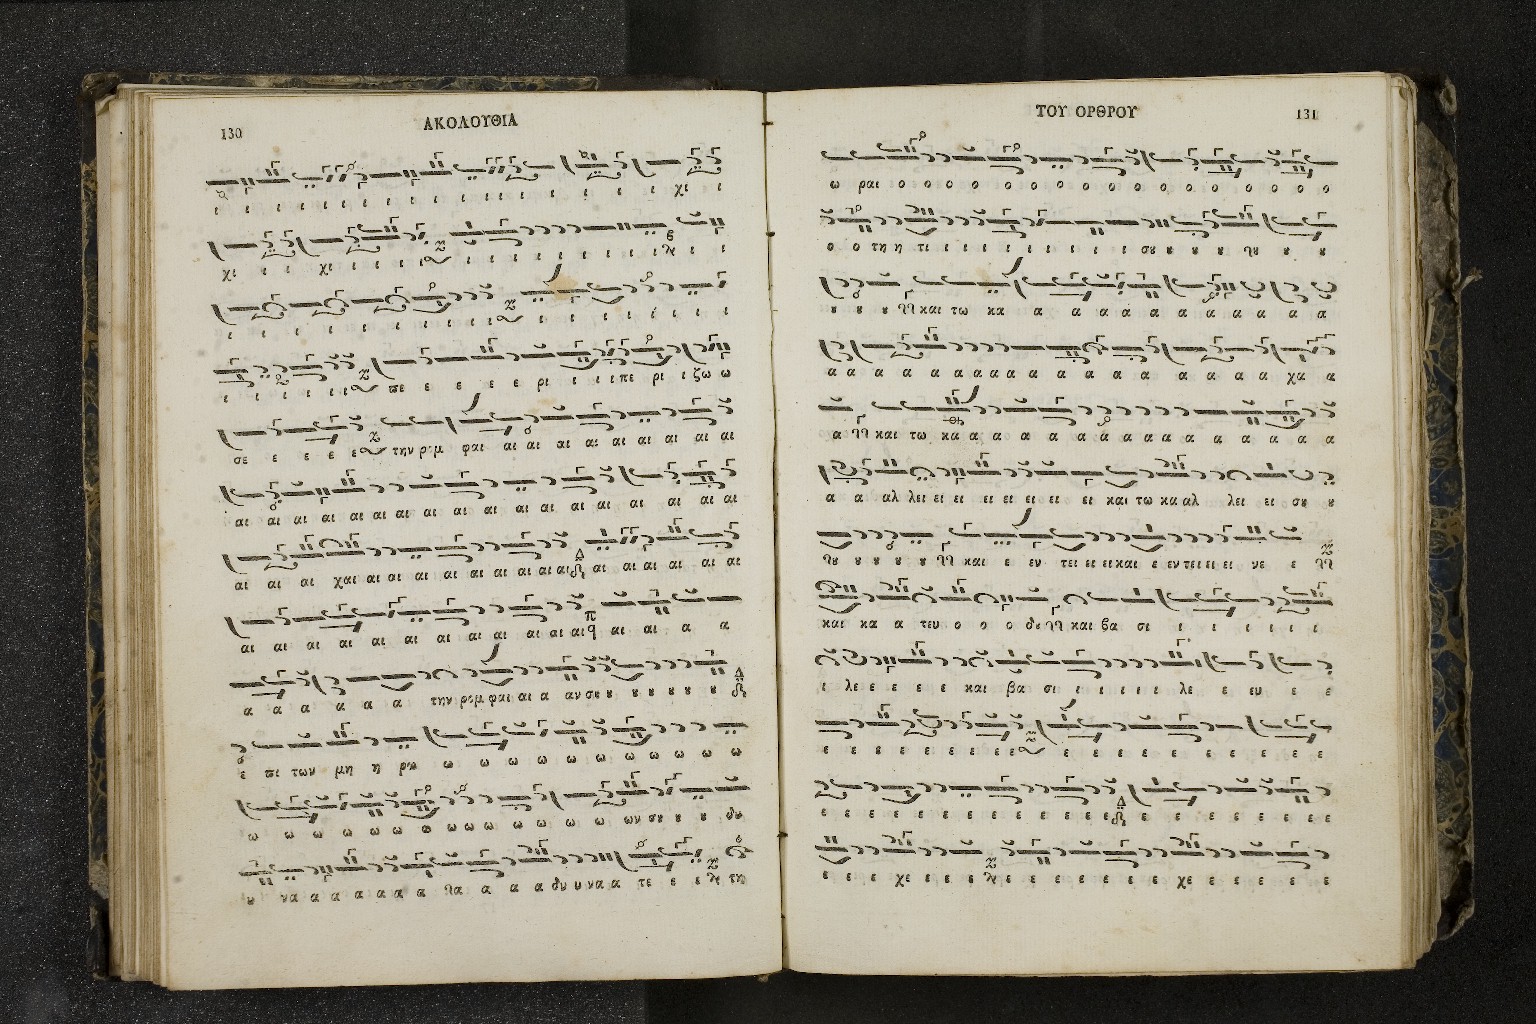 130
ΑΚΟΛΟΥΘΙΑ
ι ι ι ι ι ι ι ι ι ι ι ι ι ι ι ι ι χι ι
χι ι ι χι ι ι ι ι ι ι ι ι ι ι ι ι ι ι ι ι
ι ι ι ι ι ι ι ι ι ι ι ι ι ι ι ι
ι ι ι ι ι ι πε ε ε ε ε ρι ι ι πε ρι ι ζω ω
σε ε ε ε ε την ρομ φαι αι αι αι αι αι αι αι αι αι
αι αι αι αι αι αι αι αι αι αι αι αι αι αι αι αι αι αι
αι αι αι χαι αι αι αι αι αι αι αι αι αι αι αι αι αι αι
αι αι αι αι αι αι αι αι αι αι αι αι α α
α α α α α α την ρομ φαι αι α αν σου ου ου ου ου ου ου
ε πι των μη η ρω ω ω ω ω ω ω ω ω ω ω
ω ω ω ω ω ω ω ω ω ω ω ω ων σου ου ου δυ
υ να α α α α α α λα α α α δυ υ να α τε ε ε τη
ΤΟΥ ΟΡΘΡΟΥ
131
ω ραι ο ο ο ο ο ο ο ο ο ο ο ο ο ο ο ο ο
ο ο τη η τι ι ι ι ι ι ι ι ι ι σου ου ου ου λου ου ου
ου ου ου και τω κα α α α α α α α α α α α
α α α α α α α α α α α α α α α α α χα α
α και τω κα α α α α α α α α α α α α α α α
α α αλ λει ει ει ει ει ει ει ει και τω κα αλ λει ει σου ου
λου ου ου ου ου και ε εν τει ει ει και ε εν τει ει ει νε ε
και κα α τευ ο ο ο δου και βα σι ι ι ι ι ι
ι λε ε ε ε ε και βα σι ι ι ι ι ι λε ε ευ ε ε
ε ε ε ε ε ε ε ε ε ε ε ε ε ε ε ε ε ε ε ε
ε ε ε ε ε ε ε ε ε ε ε ε ε ε ε ε ε ε ε ε ε
ε ε ε χε ε ε ε ε ε ε ε ε ε ε χε ε ε ε ε ε